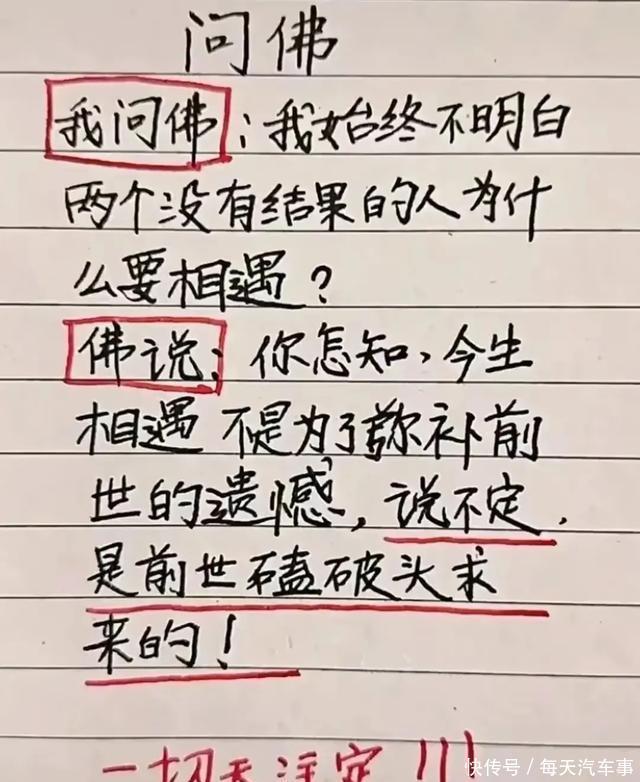 问佛
我问佛：我始终不明白
两个没有结果的人为什
么要相遇？
佛说：你怎知、今生
相遇不是为了弥补前
世的遗憾，说不定，
是前世磕破头求
来的！
一切天注定!!!
快传号/每天汽车事